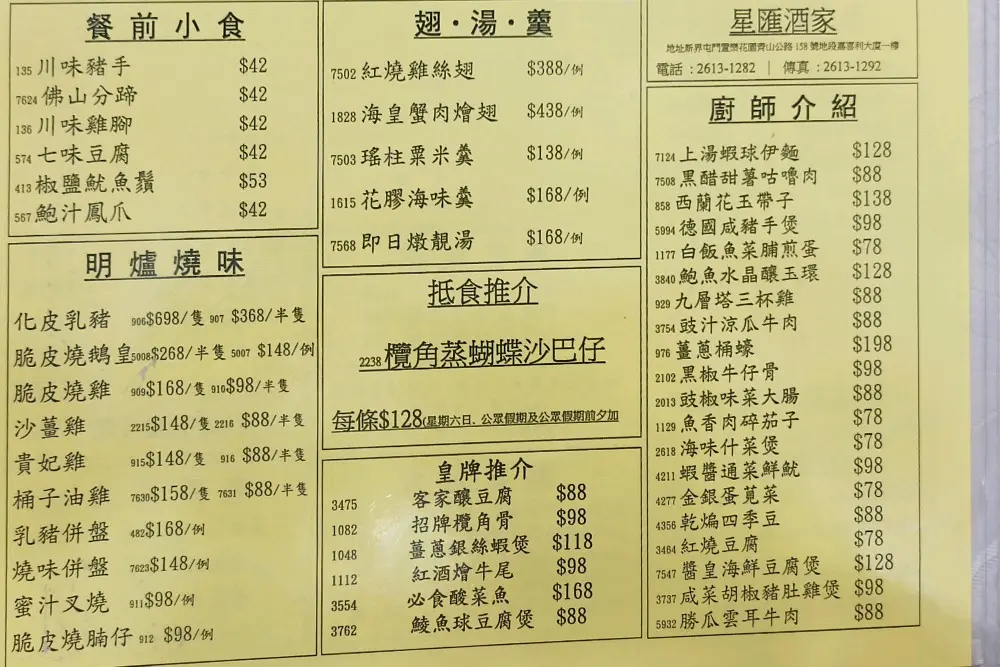 餐前小食
135 川味豬手 $42
7624 佛山分蹄 $42
136 川味雞腳 $42
574 七味豆腐 $42
413 椒鹽魷魚鬚 $53
567 鮑汁鳳爪 $42
明爐燒味
化皮乳豬 906 $698/隻 907 $368/半隻
脆皮燒鵝皇 5008 $268/半隻 5007 $148/例
脆皮燒雞 909 $168/隻 910 $98/半隻
沙薑雞 2215 $148/隻 2216 $88/半隻
貴妃雞 915 $148/隻 916 $88/半隻
桶子油雞 7630 $158/隻 7631 $88/半隻
乳豬併盤 482 $168/例
燒味併盤 7623 $148/例
蜜汁叉燒 911 $98/例
脆皮燒腩仔 912 $98/例
翅·湯·羹
7502 紅燒雞絲翅 $388/例
1828 海皇蟹肉燴翅 $438/例
7503 瑤柱粟米羹 $138/例
1615 花膠海味羹 $168/例
7568 即日燉靚湯 $168/例
抵食推介
2238 欖角蒸蝴蝶沙巴仔
每條$128(星期六日、公眾假期及公眾假期前夕加
皇牌推介
3475 客家釀豆腐 $88
1082 招牌欖角骨 $98
1048 薑蔥銀絲蝦煲 $118
1112 紅酒燴牛尾 $98
3554 必食酸菜魚 $168
3762 鯪魚球豆腐煲 $88
星匯酒家
地址新界屯門置樂花園青山公路 158 號地段嘉喜利大廈一樓
電話 : 2613-1282 | 傳真 : 2613-1292
廚師介紹
7124 上湯蝦球伊麵 $128
7508 黑醋甜薯咕嚕肉 $88
858 西蘭花玉帶子 $138
5994 德國咸豬手煲 $98
1177 白飯魚菜脯煎蛋 $78
3840 鮑魚水晶釀玉環 $128
929 九層塔三杯雞 $88
3754 豉汁涼瓜牛肉 $88
976 薑蔥桶蠔 $198
2102 黑椒牛仔骨 $98
2013 豉椒味菜大腸 $88
1129 魚香肉碎茄子 $78
2618 海味什菜煲 $78
4211 蝦醬通菜鮮魷 $98
4277 金銀蛋莧菜 $78
4356 乾煸四季豆 $88
3464 紅燒豆腐 $78
7547 醬皇海鮮豆腐煲 $128
3737 咸菜胡椒豬肚雞煲 $98
5932 勝瓜雲耳牛肉 $88